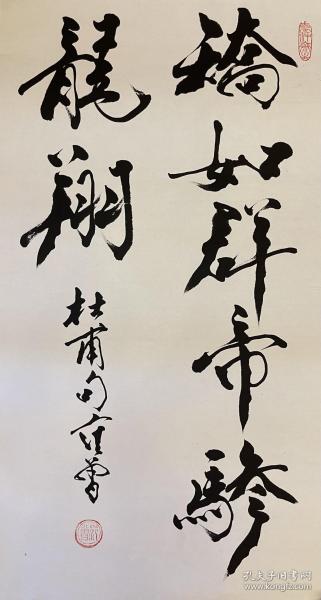 矯如群帝驂
龍翔
杜甫句 范曾
孔夫子旧书网